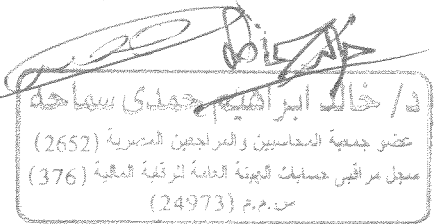 د/ خالد ابراهيم حمدى سماحه
عضو جمعية المحاسبين والمراجعين المصرية (2652)
سجل مراقبى حسابات الهيئة العامة للرقابة المالية (376)
س.م.م (24973)